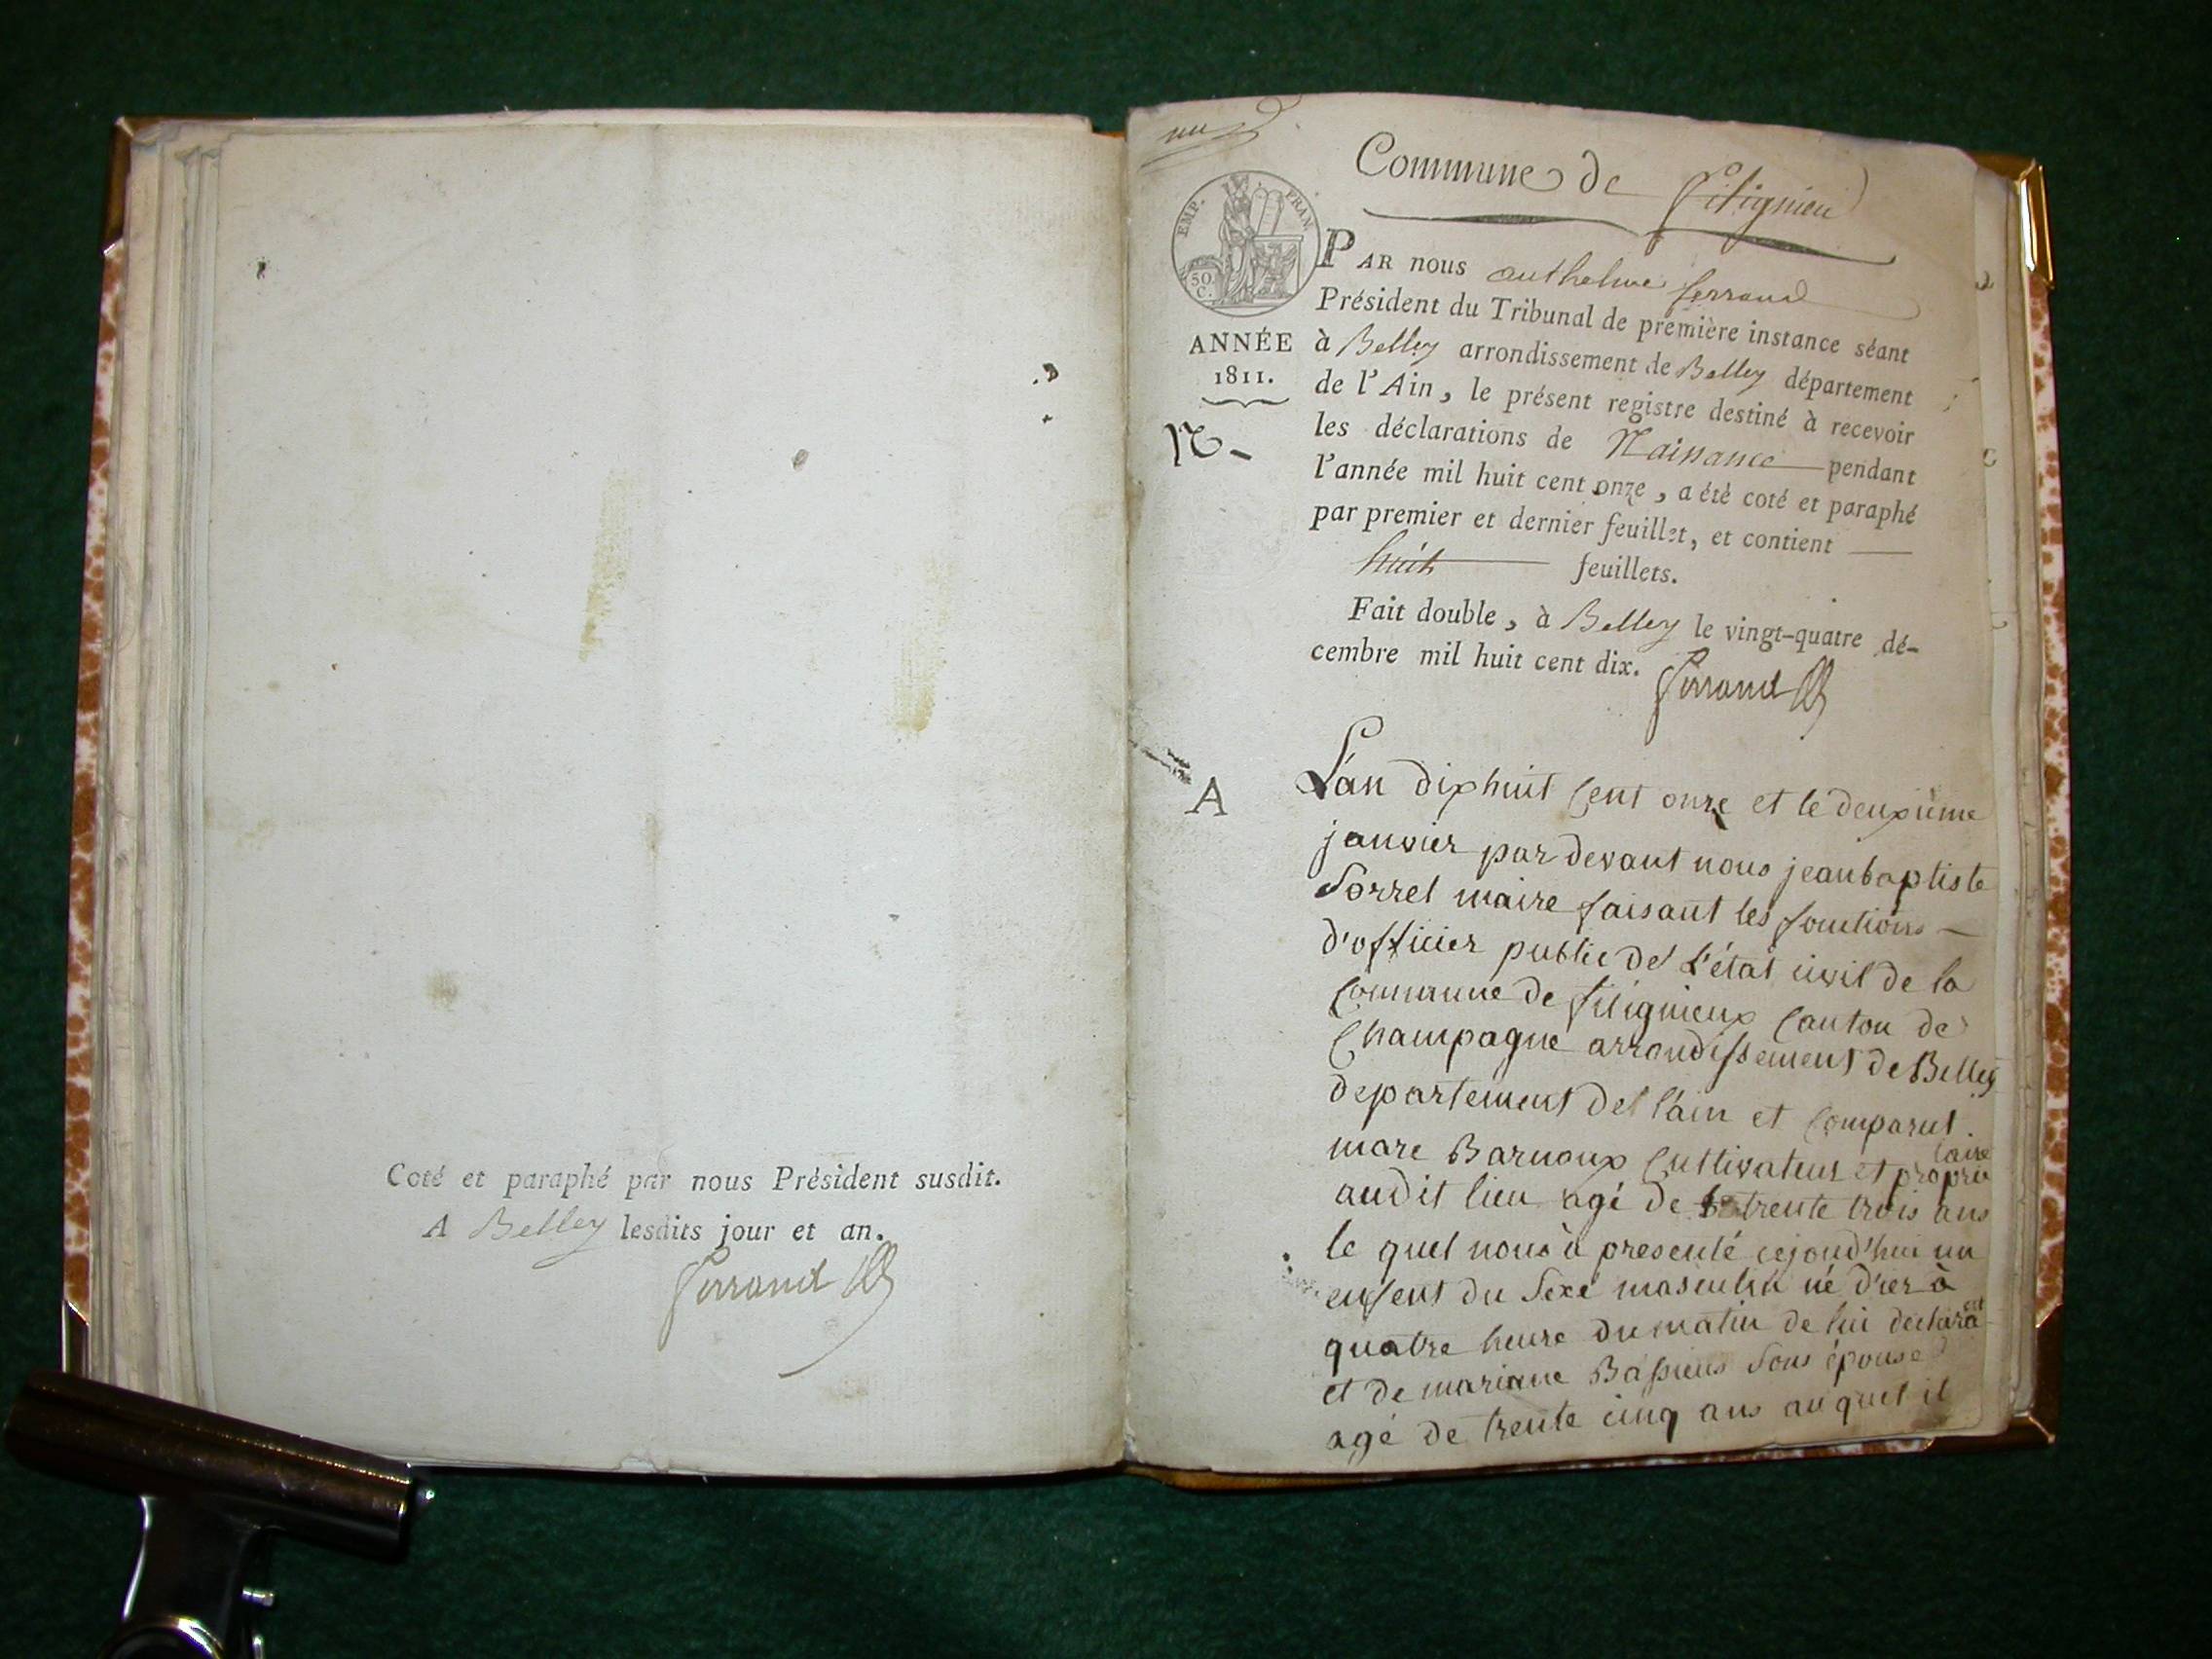 Coté et paraphé par nous Président susdit.
A Belley lesdits jour et an.
Ferrand
un
Commune de fitignieu
EMP. FRAN
50 C.
ANNÉE
1811.
N-
PAR nous anthelme ferrand
Président du Tribunal de première instance séant
à Belley arrondissement de Belley département
de l'Ain, le présent registre destiné à recevoir
les déclarations de Naissance pendant
l'année mil huit cent onze, a été coté et paraphé
par premier et dernier feuillet, et contient
huit feuillets.
Fait double, à Belley le vingt-quatre dé-
cembre mil huit cent dix.
Ferrand
A
L'an dixhuit cent onze et le deuxieme
janvier par devant nous jean baptiste
Sorrel maire faisant les fonctions
d'officier public de l'état civil de la
commune de fitignieux canton de
Champagne arrondissement de Belley
departement de l'ain et comparut
marc Barnoux cultivateur et proprietaire
audit lieu agé de trente trois ans
le quel nous à presenté cejourd'hui un
enfent du Sexe masculin né d'ier à
quatre heure du matin de lui déclarant
et de mariane Bassieus Sons épouse
agé de trente cinq ans auquel il